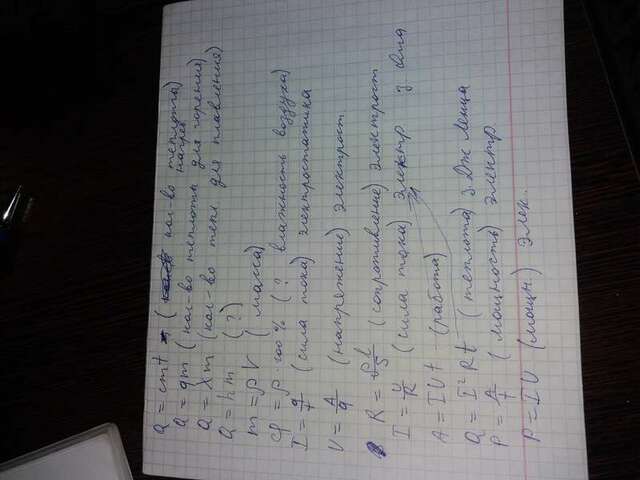 Q = cmt (кол-во теплота) нагрев
Q = qm (кол-во теплоты для горения)
Q = λm (кол-во тепл для плавления)
Q = hm (?)
m = ρV (масса)
φ = ρ · 100% (? влажность воздуха)
I = q/t (сила тока) электростатика
V = A/q (напряжение) электрост.
R = ρl/S (сопротивление) электрост
I = U/R (сила тока) электр з. Ома
A = IUt (работа)
Q = I²Rt (теплота) З.Дж Ленца
P = A/t (мощность) электр.
P = IU (мощн.) элек.